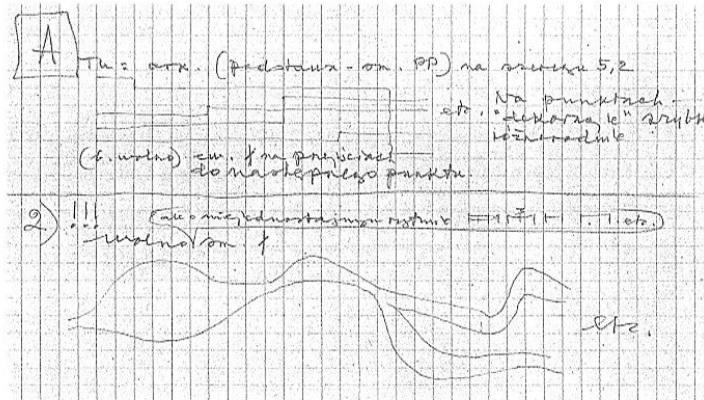 A
Tu = ork. (podstawa - sm. PP) na szeregu 5,2
etc. Na punktach -
"dekoracje" szybkie
różnorodnie
(b. wolno) ew. f na przejściach
do następnego punktu.
2) !!! (ale o niejednostajnym rytmie etc.)
wolno sm. f
etc.